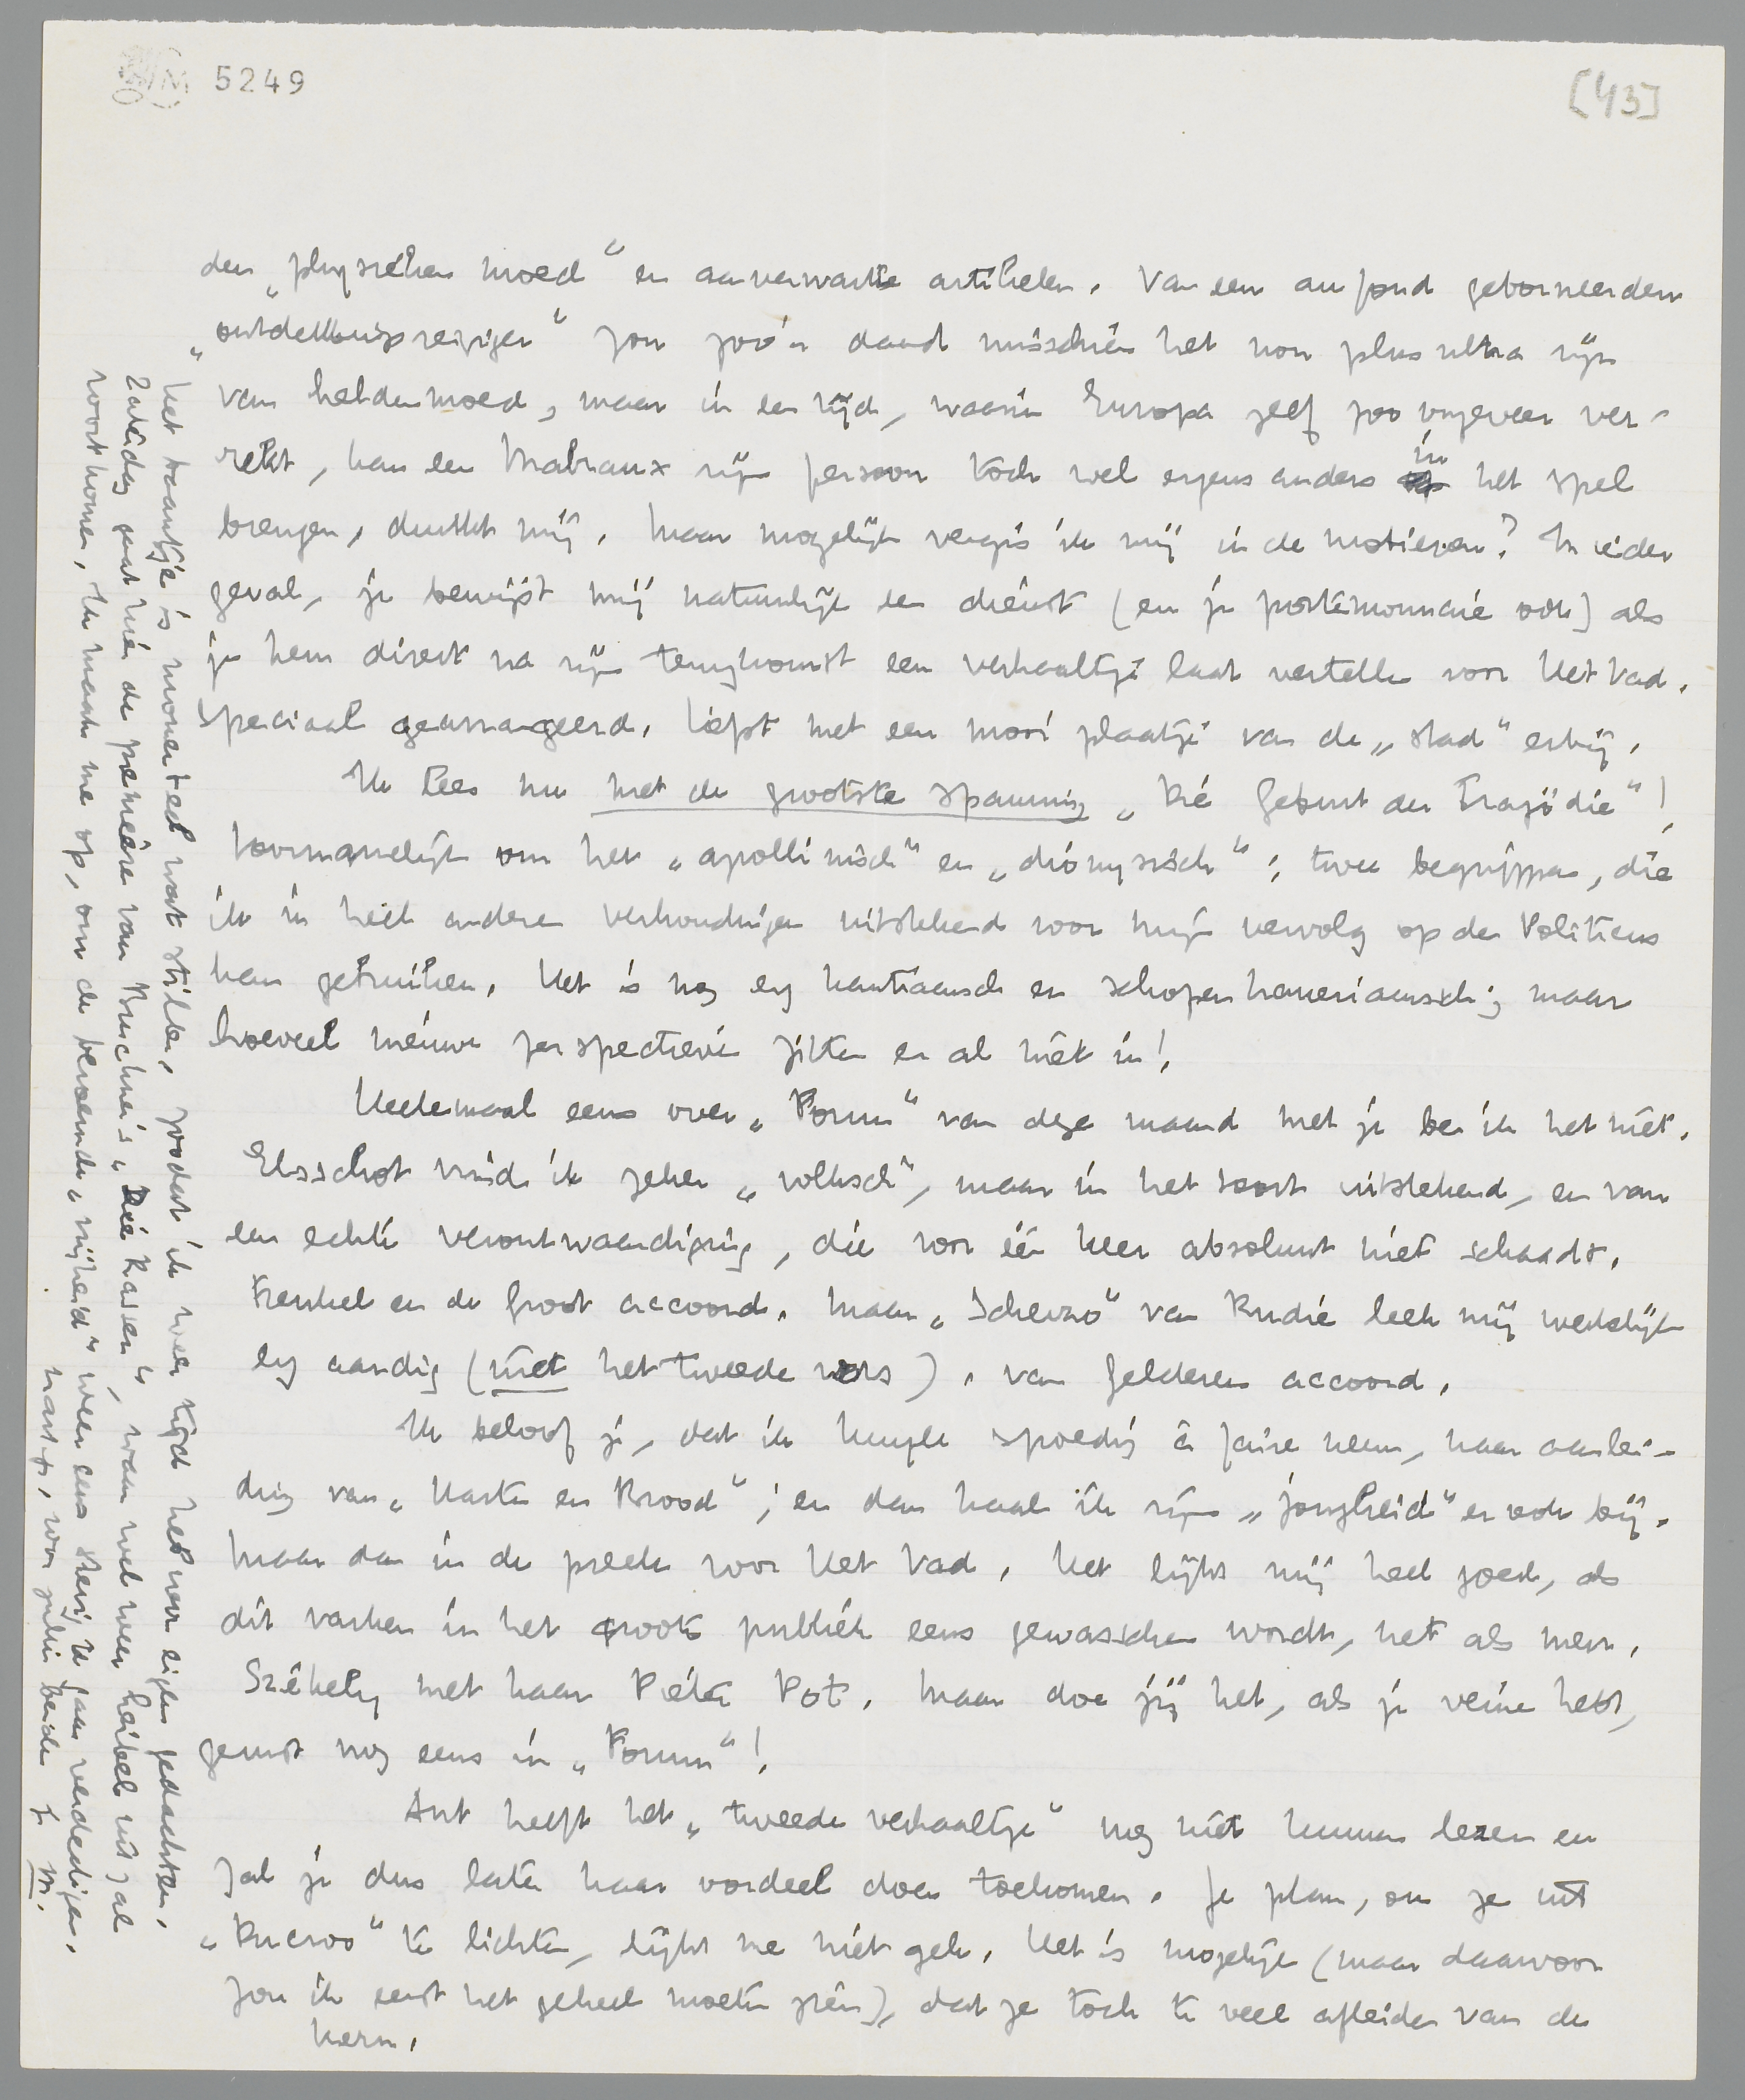 5249
[43]
den „physieken moed" en aanverwante artikelen. Van een au fond geborneerden
„ontdekkingsreiziger" zou zoo'n daad misschien het non plus ultra zijn
van heldenmoed, maar in een tijd, waarin Europa zelf zoo ongeveer ver-
rekt, kan een Malraux zijn persoon toch wel ergens anders in het spel
brengen, dunkt mij. Maar mogelijk vergis ik mij in de motieven? In ieder
geval, je bewijst mij natuurlijk een dienst (en je portemonnaie ook) als
je hem direct na zijn terugkomst een verhaaltje laat vertellen voor Het Vad.
speciaal gearrangeerd, liefst met een mooi plaatje van de „stad" erbij.
Ik lees nu met de grootste spanning „Die Geburt der Tragödie"!
Voornamelijk om het „apollinisch" en „dionysisch"; twee begrippen, die
ik in heel andere verhoudingen uitstekend voor mijn vervolg op den Politicus
kan gebruiken. Het is nog erg kantiaansch en schopenhaueriaansch; maar
hoeveel nieuwe perspectieven zitten er al niet in!
Heelemaal eens over „Forum" van deze maand met je ben ik het niet.
Elsschot vind ik zeker „volksch", maar in het soort uitstekend, en van
een echte verontwaardiging, die voor één keer absoluut niet schaadt.
Frenkel en de Groot accoord. Maar „Scherzo" van Rudie leek mij werkelijk
erg aardig (niet het tweede vers). van Gelderen accoord.
Ik beloof je, dat ik Kuyle spoedig à faire neem, naar aanlei-
ding van „Harten en Brood"; en dan haal ik zijn „jongheid" er ook bij.
Maar dan in de preek voor Het Vad. Het lijkt mij heel goed, als
dit varken in het groote publiek eens gewasschen wordt, net als mevr.
Székely met haar Pieter Pot. Maar doe jij het, als je veine hebt,
gerust nog eens in „Forum"!
Ant heeft het „tweede verhaaltje" nog niet kunnen lezen en
zal je dus later haar oordeel doen toekomen. Je plan, om ze uit
„Ducroo" te lichten, lijkt me niet gek. Het is mogelijk (maar daarvoor
zou ik eerst het geheel moeten zien), dat ze toch te veel afleiden van de
kern.
Het baantje is momenteel wat stiller, zoodat ik weer tijd heb voor eigen gedachten.
Zaterdag gaat hier de première van Bruckner's „Die Rassen", waar wel weer heibel uit zal
voortkomen. Ik maak me op, om de beroemde „vrijheid" weer eens stevig te gaan verdedigen.
hart. gr., voor jullie beiden je M.